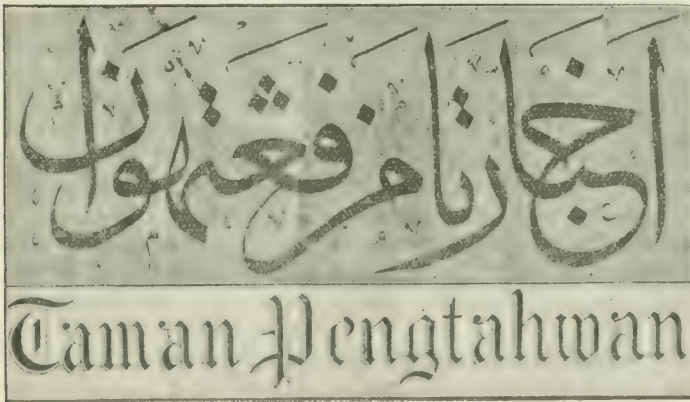 اخبار تامن فڠتهوان
Taman Pengtahwan